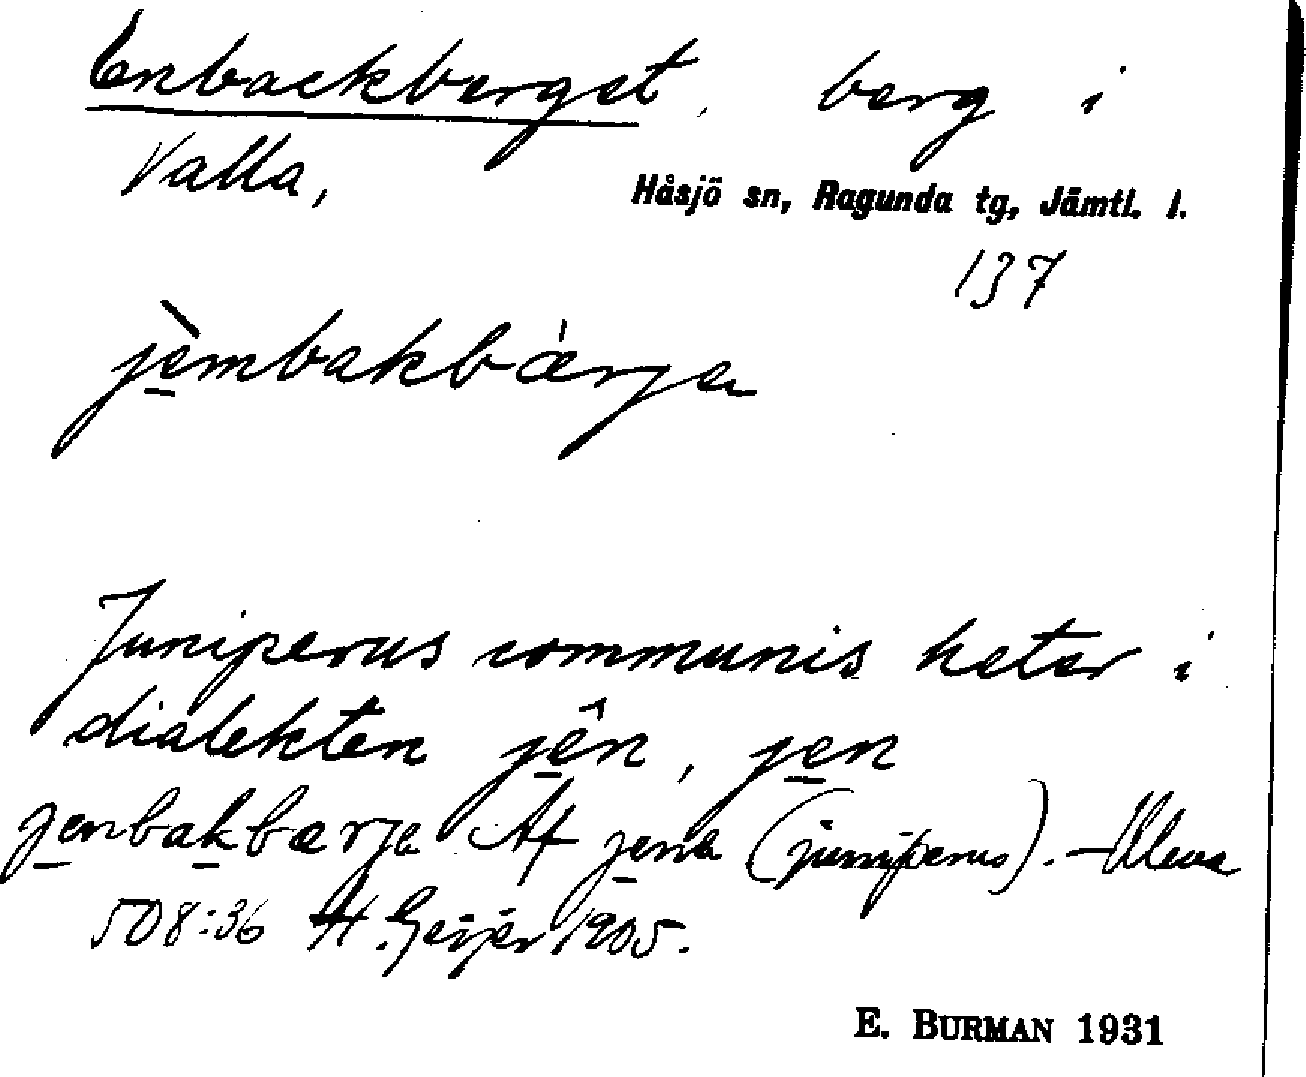 Enbackberget, berg i
Valla,
Håsjö sn, Ragunda tg, Jämtl. l.
137
jèmbakbàrja
Juniperus communis heter i
dialekten jên, jen
jenbakbærja Af jena (juniperus). –
508:36 H. Geijer 1905.
E. BURMAN 1931